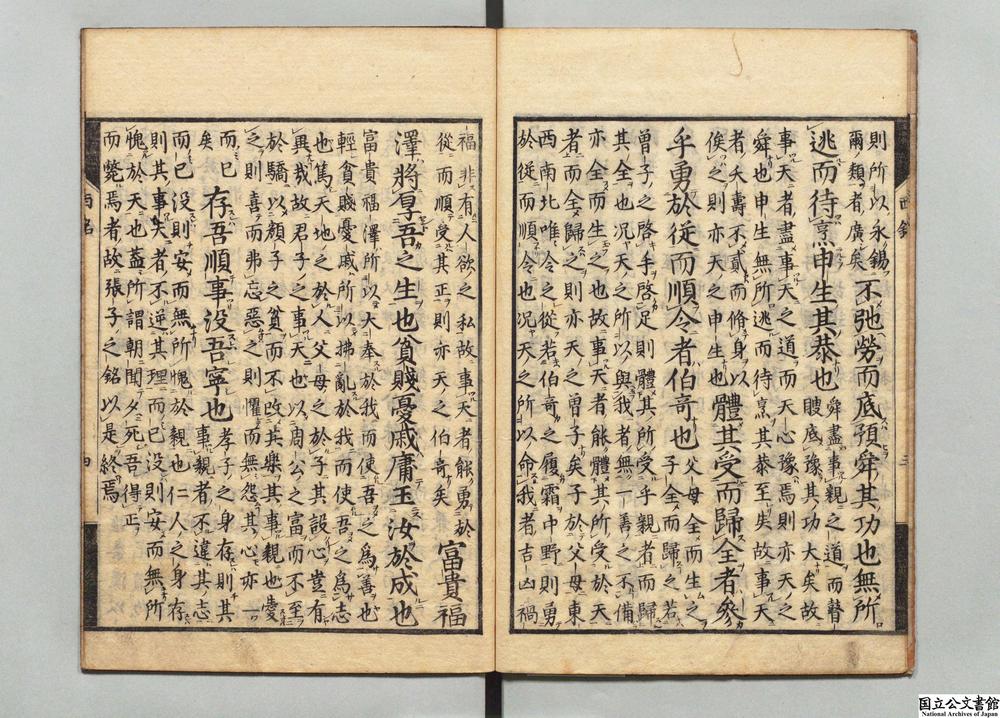 則所以永錫
爾類者廣矣
不弛勞而底預舜其功也無所
逃而待烹申生其恭也
舜盡事親之道而瞽
瞍底豫其功大矣故
事天者盡事天之道而天心豫焉則亦天之
舜也申生無所逃而待烹其恭至矣故事天
者夭壽不貳而脩身以
俟之則亦天之申生也
體其受而歸全者參
乎勇於從而順令者伯奇也
父母全而生之
子全而歸之若
曾子之啓手啓足則體其所受乎親者而歸
其全也況天之所以與我者無一善之不備
亦全而生之也故事天者能體其所受於天
者而全歸之則亦天之曾子矣子於父母東
西南北唯令之從若伯奇之履霜中野則勇
於從而順令也況天之所以命我者吉凶禍
福非有人欲之私故事天者能勇於
從而順受其正則亦天之伯奇矣
富貴福
澤將厚吾之生也貧賤憂戚庸玉汝於成也
富貴福澤所以大奉於我而使吾之爲善也
輕貧賤憂戚所以拂亂於我而使吾之爲志
也篤天地之於人父母之於子其設心豈有
異哉故君子之事天也以周公之富而不至
於驕以顏子之貧而不改其樂其事親也愛
之則喜而弗忘惡之則懼而無怨其心亦一
而已
矣
存吾順事没吾寧也
孝子之身存則其
事親者不違其志
而已没則安而無所愧於親也仁人之身存
則其事天者不逆其理而已没則安而無所
愧於天也蓋所謂朝聞夕死吾得正
而斃焉者故張子之銘以是終焉
西銘
国立公文書館
National Archives of Japan